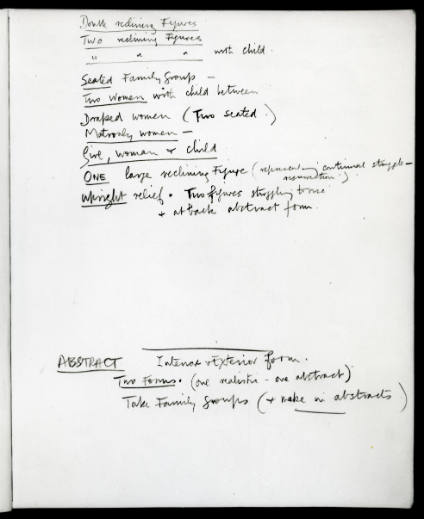 Double reclining Figures
Two reclining Figures
" " " with child.
Seated Family Groups —
Two Women with child between
Draped women (Two seated.)
Matronly women —
Girl, woman + child
ONE large reclining Figure (represent continual struggle —
resurrection.)
Upright relief. Two figures struggling to rise
+ at back abstract form.
ABSTRACT Internal + Exterior form.
Two Forms. (one realistic - one abstract)
Take Family Groups (+ make in abstracts)